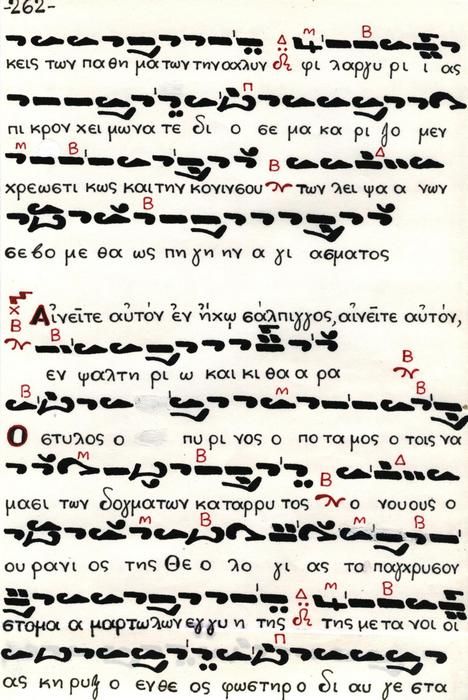 -262-
κεις των παθη μα των την αχλυν φι λαργυ ρι ι ας
πι κρον χει μωνα τε δι ο σε μα κα ρι ζο μεν
χρεωστι κως και την κονιν σου των λει ψα α νων
σε βο με θα ως πη γη ην α γι ασματος
Αἰνεῖτε αὐτόν ἐν ἤχῳ σάλπιγγος, αἰνεῖτε αὐτόν,
εν ψαλτη ρι ω και κι θα α ρα
Ο στυλος ο πυ ρι νος ο πο τα μος ο τοις να
μασι των δογματων καταρρυ τος ο νους ο
ου ρανι ος της Θε ο λο γι ας το παγχρυσον
στομα α μαρτωλων εγγυ η της της με τα νοι οι
ας κη ρυξ ο ενθε ος φωστηρ ο δι αυ γε στα